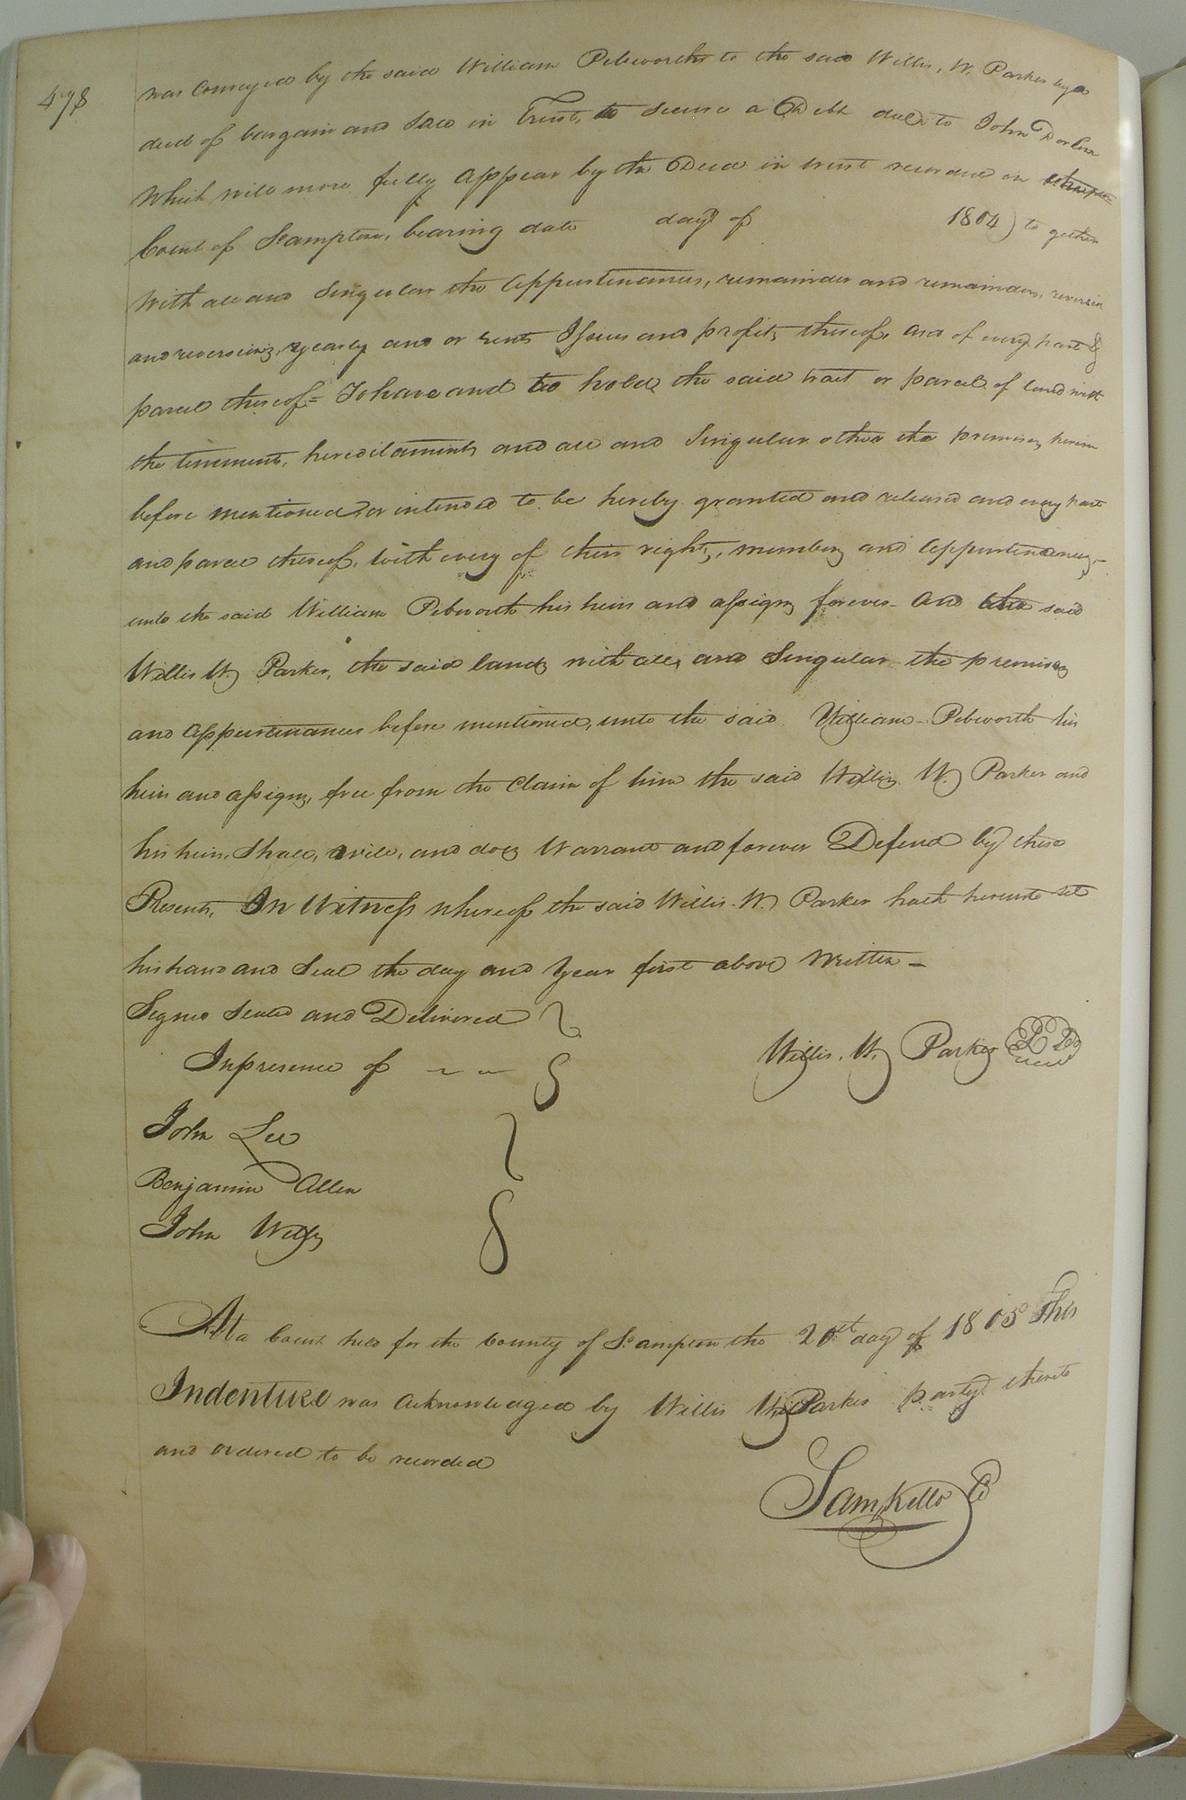 478
was Conveyed by the said William Pebworth to the said Willis, W. Parker by a
deed of bargain and Sale in Trust, to secure a Debt due to John Darden
Which will more fully Appear by the Deed in trust recorded in
Court of S°ampton, bearing date day of 1804) to gether
With all and Singular the Appurtenances, remainder and remainders, reversion
and reversions, yearly and or rents Issues and profits thereof, and of every part &
parcel thereof = To have and to hold, the said tract or parcel of land with
the tenements, hereditaments and all and Singular other the premises, herein
before mentioned or intended to be hereby granted and released and every part
and parcel thereof, with every of their rights, members and Appurtenances,-
unto the said William Pebworth his heirs and assigns forever - And the said
Willis W. Parker, the said lands with all, and Singular the premises
and Appurtenances before mentioned, unto the said William - Pebworth his
heirs and assigns, free from the Claim of him the said Willis W. Parker and
his heirs, Shall, will, and doey Warrant and forever Defend by these
Presents, In Witness whereof the said Willis. W. Parker hath hereunto set
his hand and Seal the day and Year first above Written -
Signed Sealed and Delivered
Inpresence of Willis. W. Parker
John Lee
Benjamin Allen
John Wills
At a Court held for the County of S°ampton the 20th day of 1805 This
Indenture was Acknowledged by Willis W. Parker party thereto
and ordered to be recorded
Sam Kello C